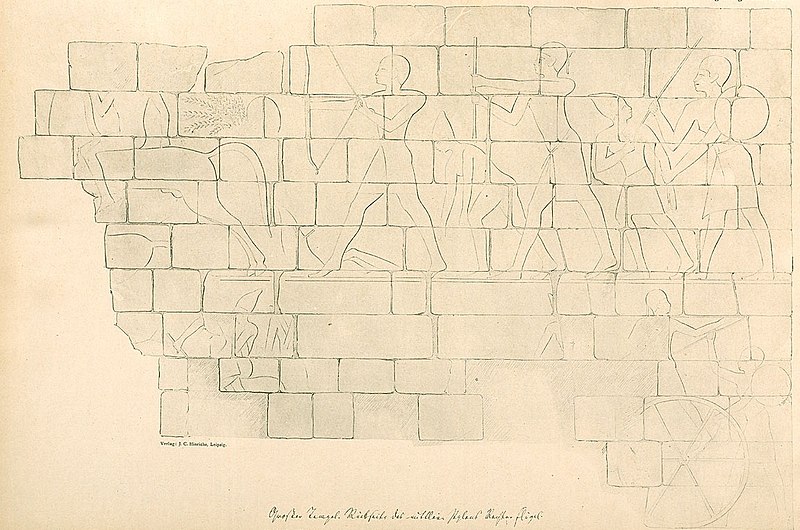 Verlag: J. C. Hinrichs, Leipzig.
Grosser Tempel. Rückseite des mittleren Pylons Rechter Flügel.